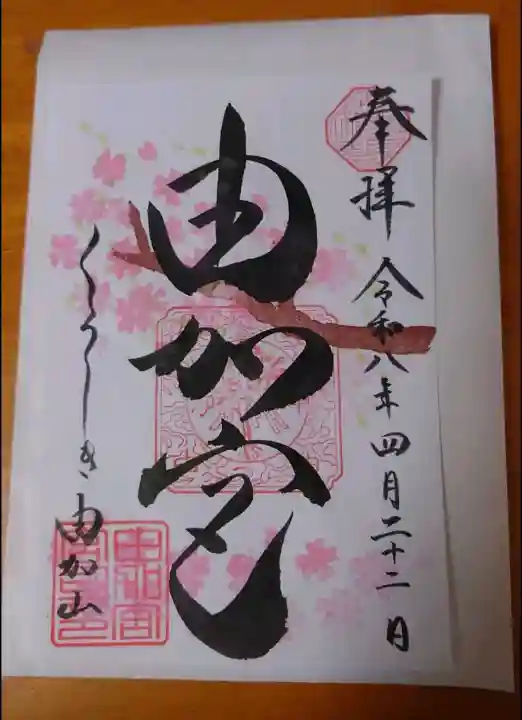 奉拝 令和八年四月二十二日
由加宮
くらしき 由加山